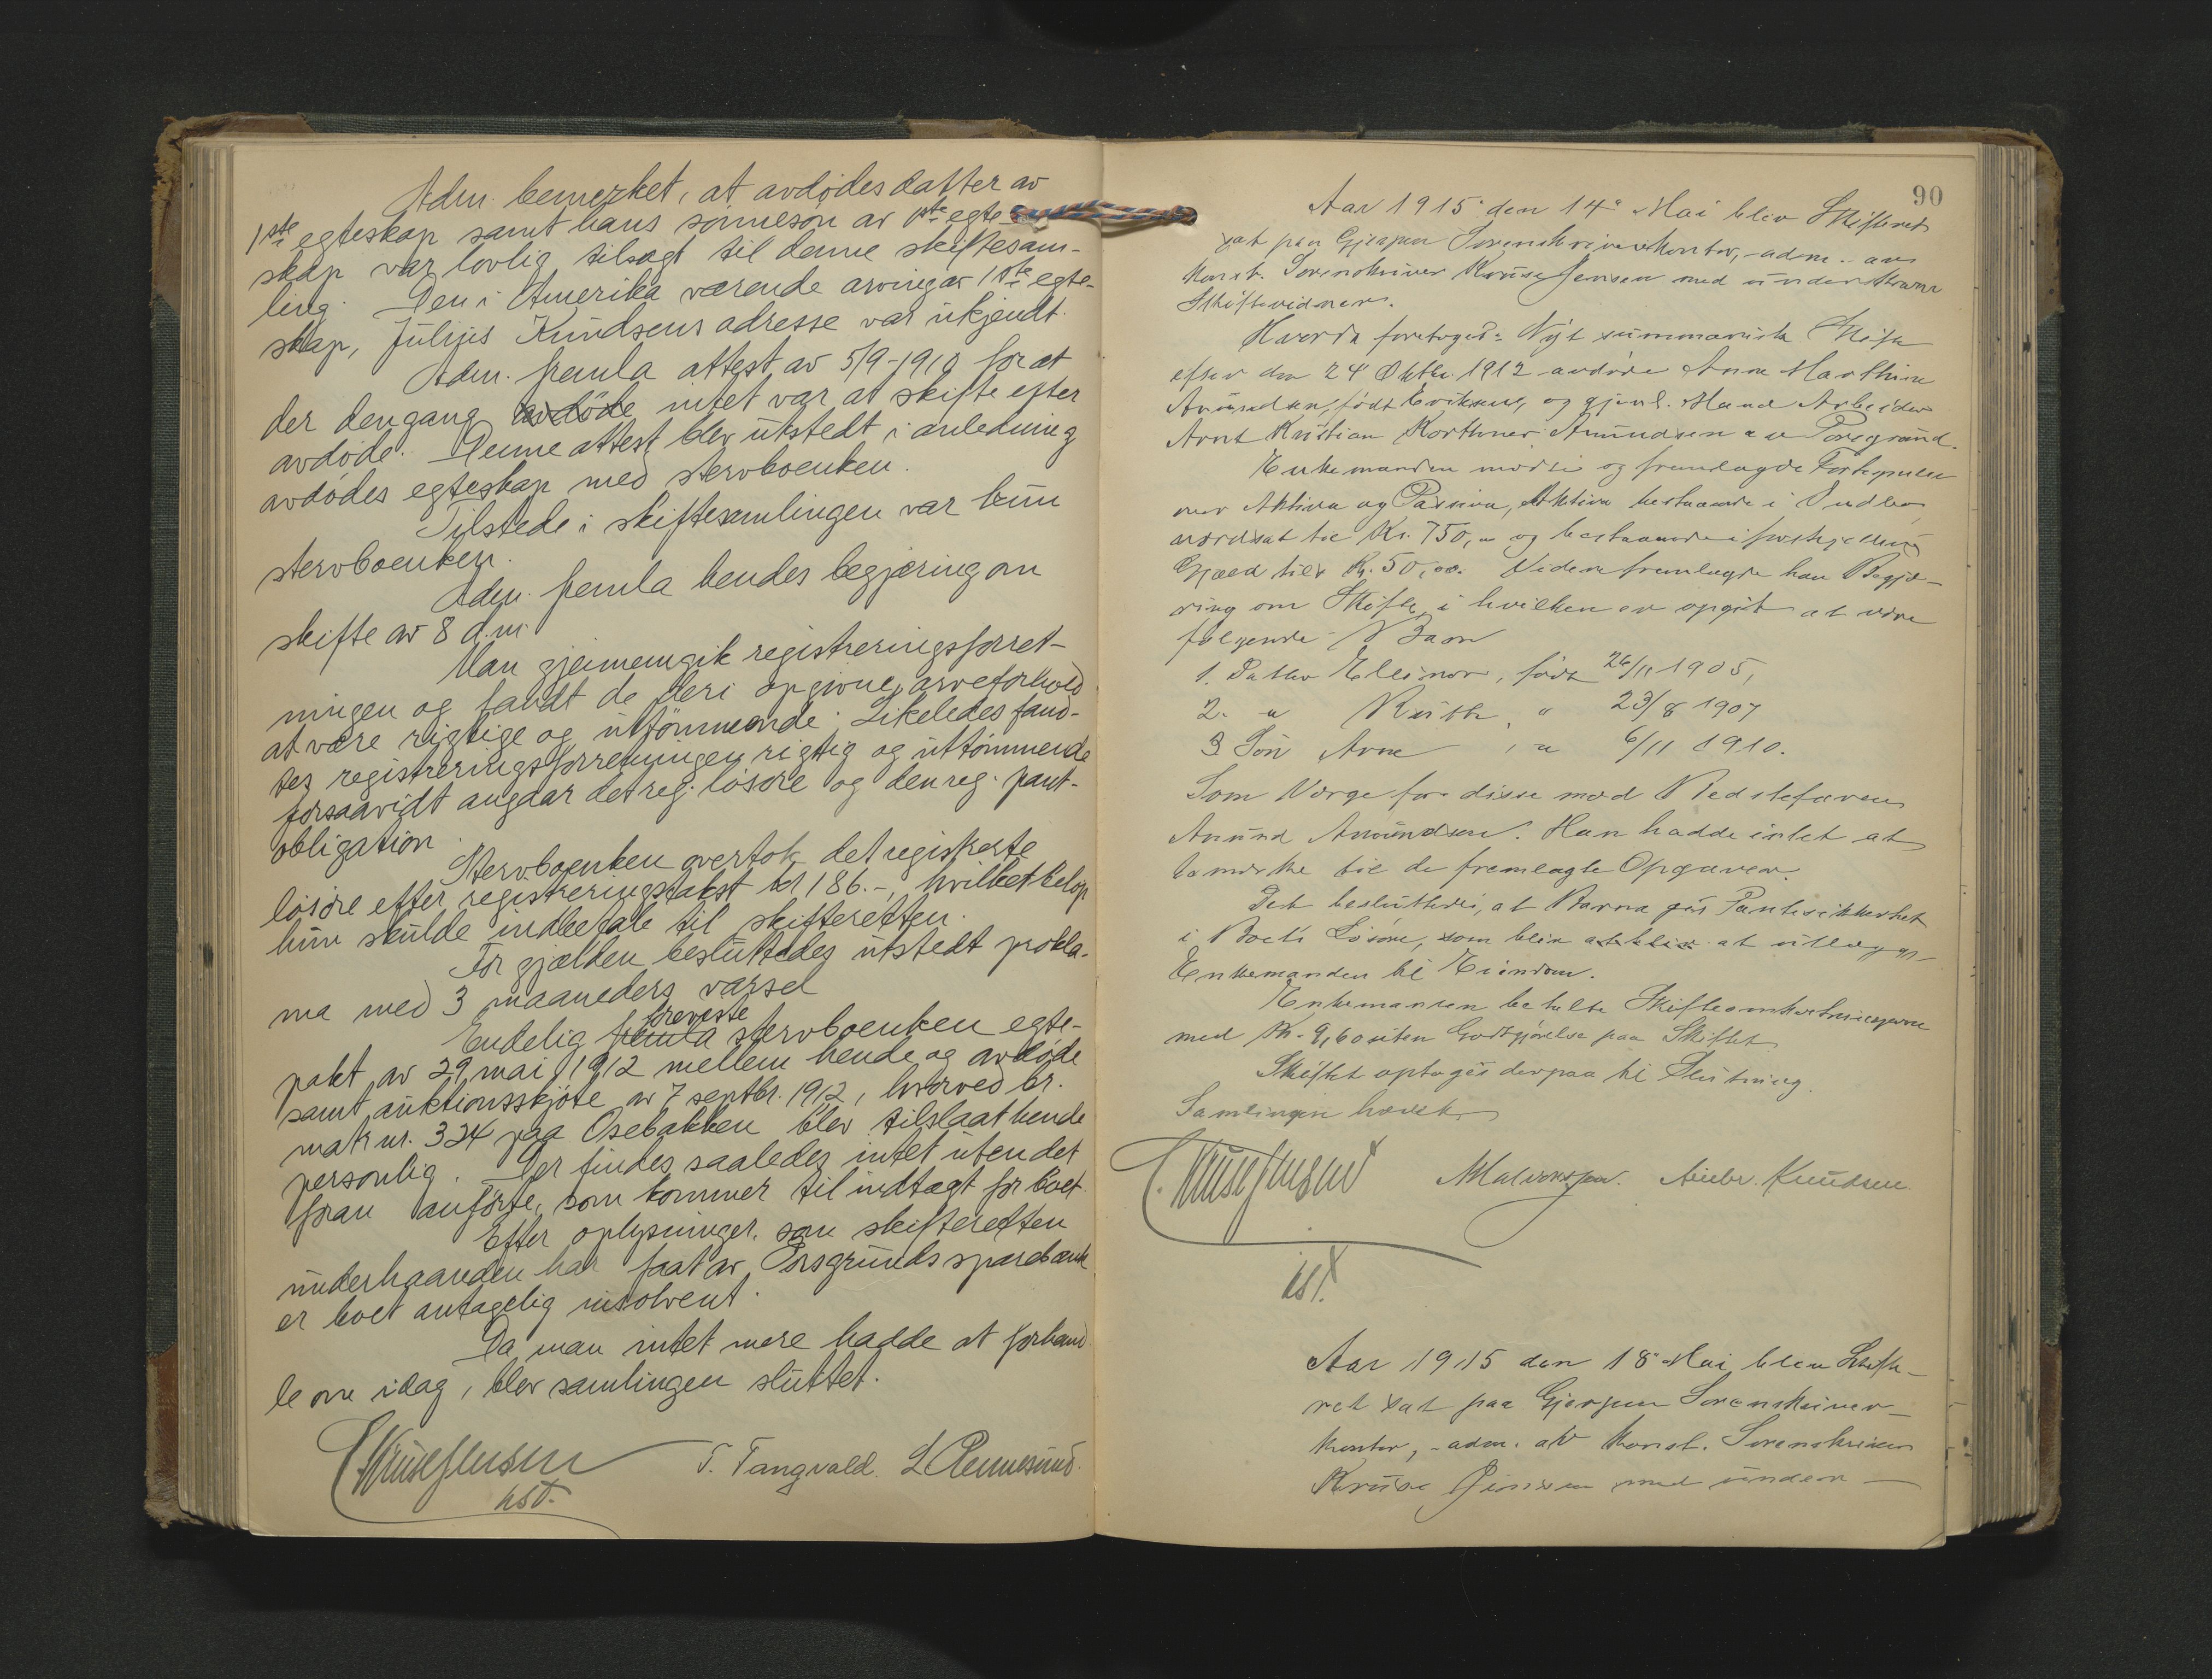 Adm. bemerket, at avdødes datter av
1ste egteskap samt hans sønnesøn av 1ste egte-
skap var lovlig tilsagt til denne skiftesam-
ling. Den i Amerika værende arving av 1ste egte-
skap, Julius Knudsens adresse var ukjendt.
Adm. fremla attest av 5/9-1910 for at
der dengang avdöde intet var at skifte efter
avdøde. Denne attest blev utstedt i anledning
avdødes egteskap med stervboenken.
Tilstede i skiftesamlingen var kun
stervboenken.
Adm. fremla hendes begjæring om
skifte av 8 d.m.
Man gjennemgik registreringsforret-
ningen og fandt de deri opgivne arveforhold
at være rigtige og uttömmende. Likeledes fand-
tes registreringsforretningen rigtig og uttömmende
forsaavidt angaar det reg. lösöre og den reg. pant-
obligation.
Stervboenken overtok det registrerte
lösöre efter registreringstakst kr 186.-, hvilket belöp
hun skulde indbetale til skifteretten.
For gjælden besluttedes utstedt prokla-
ma med 3 maaneders varsel
foreviste
Endelig fremla stervboenken egte-
pakt av 29 mai 1912 mellem hende og avdøde
samt auktionsskjöte av 7 septbr. 1912, hvorved br.
matr nr. 324 paa Osebakken blev tilslaat hende
personlig. Der findes saaledes intet uten det
foran anförte, som kommer til indtægt for boet.
Efter oplysninger, som skifteretten
underhaanden har faat av Porsgrunds sparebank
er boet antagelig insolvent.
Da man intet mere hadde at forhand
le om idag, blev samlingen sluttet.
C Kruse Jensen T. Tangvald. L Rennesund.
kst.
90
Aar 1915 den 14de Mai blev Skifteret
sat paa Gjerpen Sorenskriverkontor, - adm. av
Konst. Sorenskriver Kruse Jensen med underskrevne
Skiftevidner.
Hvorda foretoges: Nyt summarisk Skifte
efter den 24 Oktbr. 1912 avdøde Anne Marthine
Amundsen, født Eriksen, og gjenl. Mand Arbeider
Arnt Kristian Amundsen av Porsgrund.
Enkemanden mødte og fremlagde Fortegnelse
over Aktiva og Passiva, Aktiva bestaaende i Indbo
værdsat til Kr. 750,- og bestaaende i forskjellig
Gjæld tils Kr. 50,00. Videre fremlagde han Begjæ-
ring om Skifte, i hvilken er opgit at være
følgende Barn
1. Datter Eleonor, født 26/11 1905,
2. " Ruth, " 23/8 1907
3 Søn Arne, " 6/11 1910.
Som Værge for disse mød Bedstefaren
Amund Amundsen. Han hadde intet at
bemærke til de fremlagte Opgaver.
Det besluttedes, at Barna gis Pantesikkerhet
i Boets Løsøre, som blir at blir at utlægge
Enkemanden til Eiendom.
Enkemanden betalte Skifteomkostningerne
med Kr. 9,60 uten Godtgjørelse paa Skiftet
Skiftet optoges derpaa til Slutning.
Samlingen hævet
C. Kruse Jensen Ambr. Knudsen.
kst.
Aar 1915 den 18de Mai blev Skifte-
ret sat paa Gjerpen Sorenskriver-
kontor, - adm. av Konst. Sorenskriver
Kruse Jensen med under-